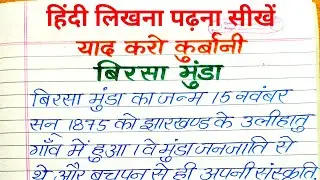 हिंदी लिखना पढ़ना सीखें
याद करो कुर्बानी
बिरसा मुंडा
बिरसा मुंडा का जन्म 15 नवंबर
सन् 1875 को झारखण्ड के उलीहातु
गाँव में हुआ। वे मुंडा जनजाति से
थे और बचपन से ही अपनी संस्कृति